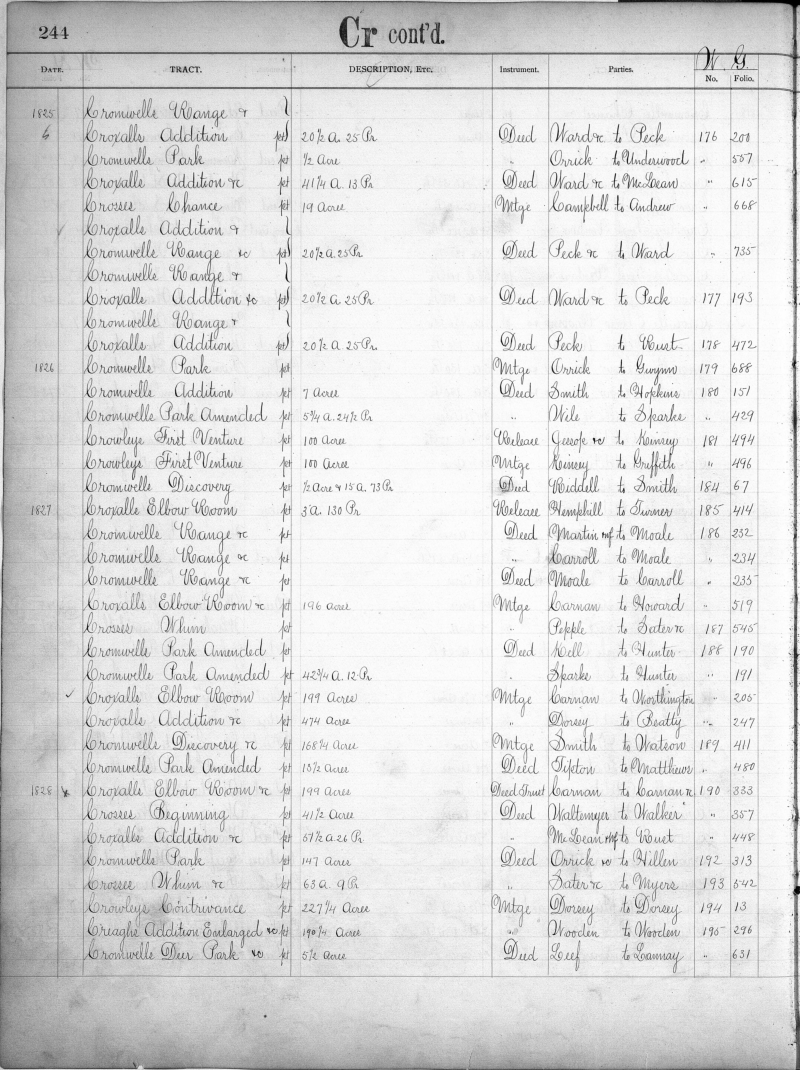 244 Cr cont'd.
W. G.
DATE. TRACT. DESCRIPTION, ETC. Instrument. Parties. No. Folio.
1825 Cromwells Range &
6 Croxalls Addition pt 20 1/2 a. 25 Pr. Deed Ward &c to Peck 176 200
Cromwells Park pt 1/2 Acre " Orrick to Underwood " 557
Croxalls Addition &c pt 41 1/4 A. 13 Pr Deed Ward &c to McLean " 615
Crosses Chance pt 19 acres Mtge Campbell to Andrew " 668
Croxalls Addition &
Cromwells Range &c pt 20 1/2 a. 25 Pr Deed Peck &c to Ward " 735
Cromwells Range &
Croxalls Addition &c pt 20 1/2 a 25 Pr Deed Ward &c to Peck 177 193
Cromwells Range &
Croxalls Addition pt 20 1/2 a. 25 Pr. Deed Peck to Rust 178 472
1826 Cromwells Park pt Mtge Orrick to Gwynn 179 688
Cromwells Addition pt 7 Acres Deed Smith to Hopkins 180 151
Cromwells Park Amended pt 5 3/4 a. 24 1/2 Pr " Wile to Sparks " 429
Crowleys First Venture pt 100 Acres Release Jessop &c to Kinsey 181 494
Crowleys First Venture pt 100 Acres Mtge Kinsey to Griffith " 496
Cromwells Discovery pt 1/2 Acre & 15 A. 73 Pr Deed Riddell to Smith 184 67
1827 Croxalls Elbow Room pt 3 a. 130 Pr Release Hemphill to Turner 185 414
Cromwells Range &c pt Deed Martin & wf to Moale 186 232
Cromwells Range &c pt " Carroll to Moale " 234
Cromwells Range &c pt Deed Moale to Carroll " 235
Croxalls Elbow Room &c pt 196 acres Mtge Carnan to Howard " 519
Crosses Whim pt " Pepple to Sater &c 187 545
Cromwells Park Amended pt Deed Kell to Hunter 188 190
Cromwells Park Amended pt 42 3/4 A. 12 Pr " Sparks to Hunter " 191
Croxalls Elbow Room pt 199 Acres Mtge Carnan to Worthington " 205
Croxalls Addition &c pt 474 acres " Dorsey to Beatty " 247
Cromwells Discovery &c pt 168 1/4 Acres Mtge Smith to Watson 189 411
Cromwells Park Amended pt 15 1/2 Acres Deed Tipton to Matthews " 480
1828 x Croxalls Elbow Room &c pt 199 Acres Deed Trust Carnan to Carnan &c 190 333
Crosses Beginning pt 41 1/2 Acres Deed Waltemyer to Walker " 357
Croxalls Addition &c pt 67 1/2 a. 26 Pr. " McLean & wf to Rust " 448
Cromwells Park pt 147 Acres Deed Orrick &c to Hillen 192 313
Crosses Whim &c pt 63 a. 9 Pr. " Sater &c to Myers 193 542
Crowleys Contrivance pt 227 1/4 Acres Mtge Dorsey to Dorsey 194 13
Creaghs Addition Enlarged &c pt 190 1/4 Acres " Wooden to Wooden 195 296
Cromwells Deer Park &c pt 5 1/2 Acres Deed Leef to Lannay " 631